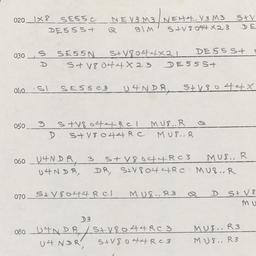 020 1X8 SE55C NEV3M3/NEH4 V3M3 S+V
DE55S+ Q 91M S+V8044X23 DE
030 S SE55N S+V8044X21 DE55S+
D S+V8044X23 DE55S+
040 S1 SE55C3 U4NDR, S+V8044X
050 3 S+V8044RC1 MU8..R Q
D S+V8044RC MU8..R
060 U4NDR, 3 S+V8044RC3 MU8..R
U4NDR, DR, S+V8044RC MU8..R
070 S+V8044RC1 MU8..R3 Q D S+V8
MU
D3
080 U4NDR,/S+V8044RC3 MU8..R3
U4NDR, S+V8044RC3 MU8..R3